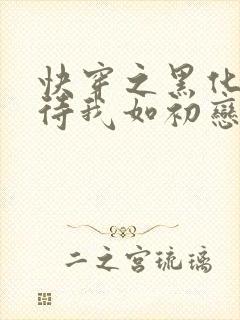 快穿之黑化
待我如初戀
二之宮琉璃